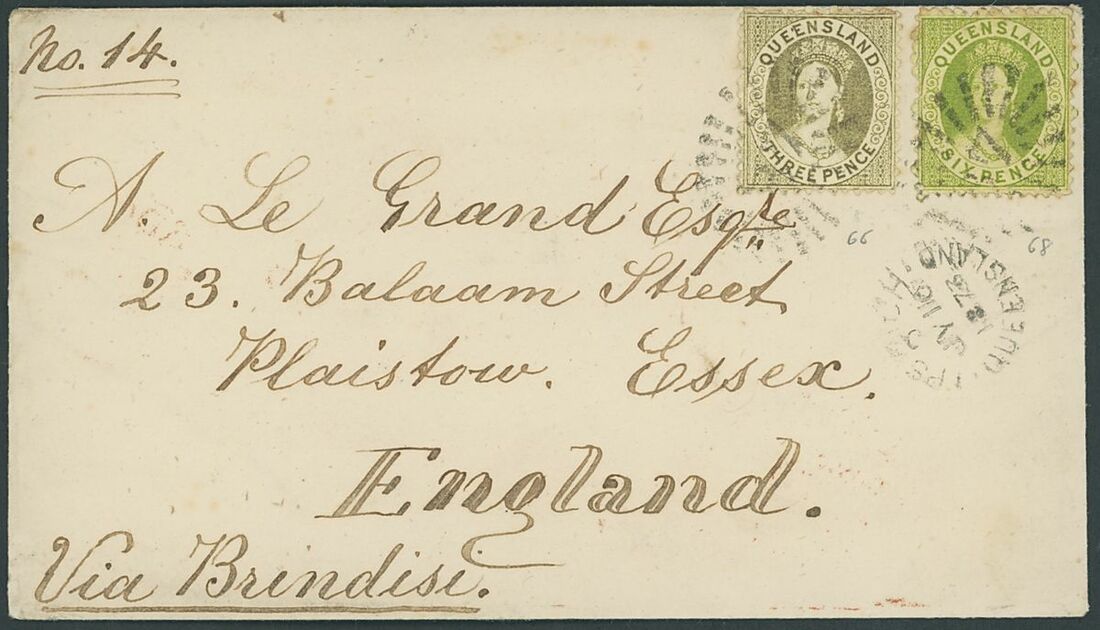 No. 14.
QUEENSLAND
THREE PENCE
QUEENSLAND
SIX PENCE
A. Le Grand Esqre
23. Balaam Street
Plaistow. Essex.
England.
Via Brindisi.
66
68
IPSWICH
QUEENSLAND